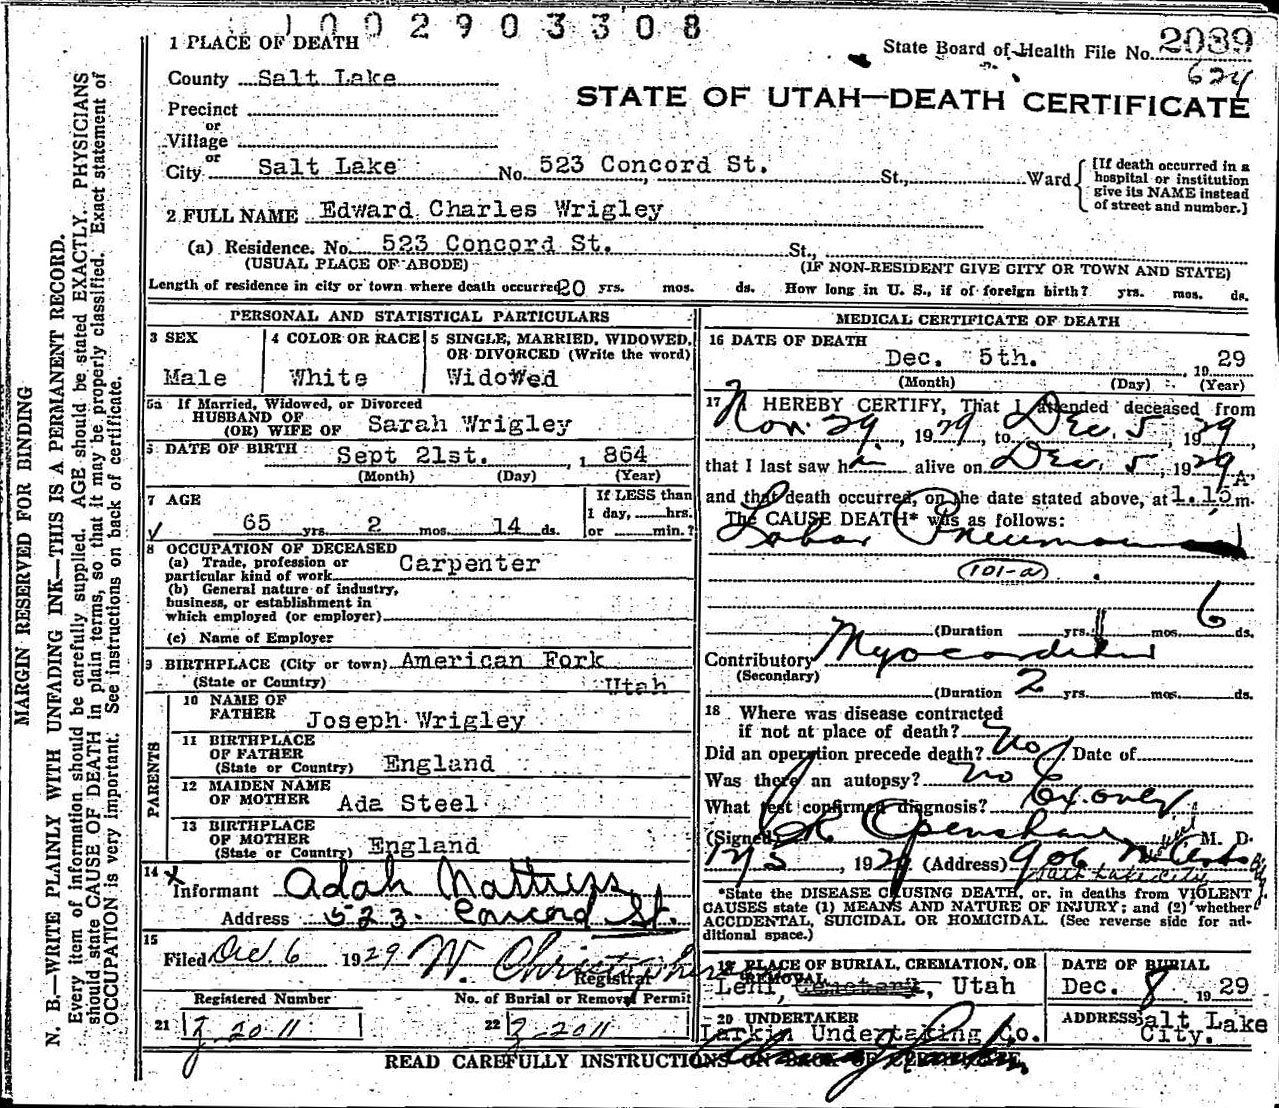 1002903308
1 PLACE OF DEATH
State Board of Health File No. 2089
624
County Salt Lake
STATE OF UTAH—DEATH CERTIFICATE
Precinct
or
Village
or
City Salt Lake No. 523 Concord St. St., Ward
[If death occurred in a hospital or institution give its NAME instead of street and number.]
2 FULL NAME Edward Charles Wrigley
(a) Residence. No. 523 Concord St. St.,
(USUAL PLACE OF ABODE) (IF NON-RESIDENT GIVE CITY OR TOWN AND STATE)
Length of residence in city or town where death occurred 20 yrs. mos. ds. How long in U. S., if of foreign birth? yrs. mos. ds.
PERSONAL AND STATISTICAL PARTICULARS
3 SEX
Male
4 COLOR OR RACE
White
5 SINGLE, MARRIED, WIDOWED, OR DIVORCED (Write the word)
Widowed
5a If Married, Widowed, or Divorced
HUSBAND OF
(OR) WIFE OF Sarah Wrigley
6 DATE OF BIRTH Sept 21st. , 1 864
(Month) (Day) (Year)
7 AGE
65 yrs. 2 mos. 14 ds.
If LESS than
1 day, hrs.
or min.?
8 OCCUPATION OF DECEASED
(a) Trade, profession or
particular kind of work Carpenter
(b) General nature of industry,
business, or establishment in
which employed (or employer)
(c) Name of Employer
9 BIRTHPLACE (City or town) American Fork
(State or Country) Utah
PARENTS
10 NAME OF
FATHER Joseph Wrigley
11 BIRTHPLACE
OF FATHER
(State or Country) England
12 MAIDEN NAME
OF MOTHER Ada Steel
13 BIRTHPLACE
OF MOTHER
(State or Country) England
14
Informant Adah Nattress
Address 523 Concord St.
15
Filed Dec. 6 1929 W. Christophersen
Registrar
Registered Number No. of Burial or Removal Permit
21 2011 22 2011
MEDICAL CERTIFICATE OF DEATH
16 DATE OF DEATH
Dec. 5th. , 19 29
(Month) (Day) (Year)
17 I HEREBY CERTIFY, That I attended deceased from
Nov. 29, 1929, to Dec. 5, 1929,
that I last saw him alive on Dec. 5, 1929,
and that death occurred, on the date stated above, at 1.15 A. m.
The CAUSE DEATH* was as follows:
Lobar Pneumonia
101-a
(Duration yrs. mos. 6 ds.
Contributory Myocarditis
(Secondary)
(Duration 2 yrs. mos. ds.
18 Where was disease contracted
if not at place of death?
Did an operation precede death? No Date of
Was there an autopsy? No
What test confirmed diagnosis? Ex. only
(Signed) Openshaw M. D.
12/5 1929 (Address) 906
Salt Lake City
*State the DISEASE CAUSING DEATH, or, in deaths from VIOLENT
CAUSES state (1) MEANS AND NATURE OF INJURY; and (2) whether
ACCIDENTAL, SUICIDAL OR HOMICIDAL. (See reverse side for ad-
ditional space.)
19 PLACE OF BURIAL, CREMATION, OR
REMOVAL
Lehi, Cemetery, Utah
DATE OF BURIAL
Dec. 8 19 29
20 UNDERTAKER
Larkin Undertaking Co.
ADDRESS Salt Lake
City.
READ CAREFULLY INSTRUCTIONS ON BACK OF CERTIFICATE
MARGIN RESERVED FOR BINDING
N. B.—WRITE PLAINLY WITH UNFADING INK—THIS IS A PERMANENT RECORD.
Every item of information should be carefully supplied. AGE should be stated EXACTLY. PHYSICIANS
should state CAUSE OF DEATH in plain terms, so that it may be properly classified. Exact statement of
OCCUPATION is very important. See instructions on back of certificate.